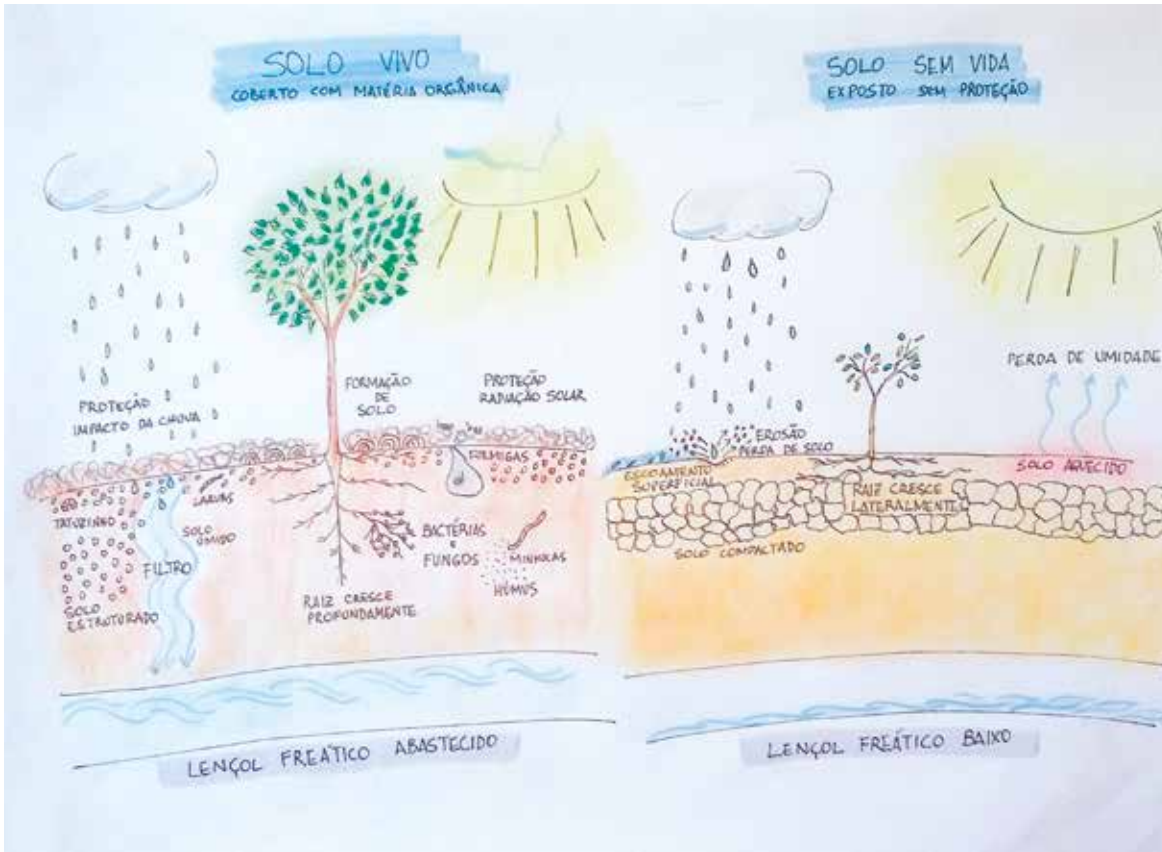 SOLO VIVO
COBERTO COM MATÉRIA ORGÂNICA
PROTEÇÃO
IMPACTO DA CHUVA
FORMAÇÃO
DE
SOLO
PROTEÇÃO
RADIAÇÃO SOLAR
FORMIGAS
LARVAS
TATUZINHO
SOLO
ÚMIDO
FILTRO
SOLO
ESTRUTURADO
BACTÉRIAS
E
FUNGOS
MINHOCAS
HÚMUS
RAIZ CRESCE
PROFUNDAMENTE
LENÇOL FREÁTICO ABASTECIDO
SOLO SEM VIDA
EXPOSTO SEM PROTEÇÃO
PERDA DE UMIDADE
EROSÃO
PERDA DE SOLO
ESCOAMENTO
SUPERFICIAL
SOLO AQUECIDO
RAIZ CRESCE
LATERALMENTE
SOLO COMPACTADO
LENÇOL FREÁTICO BAIXO